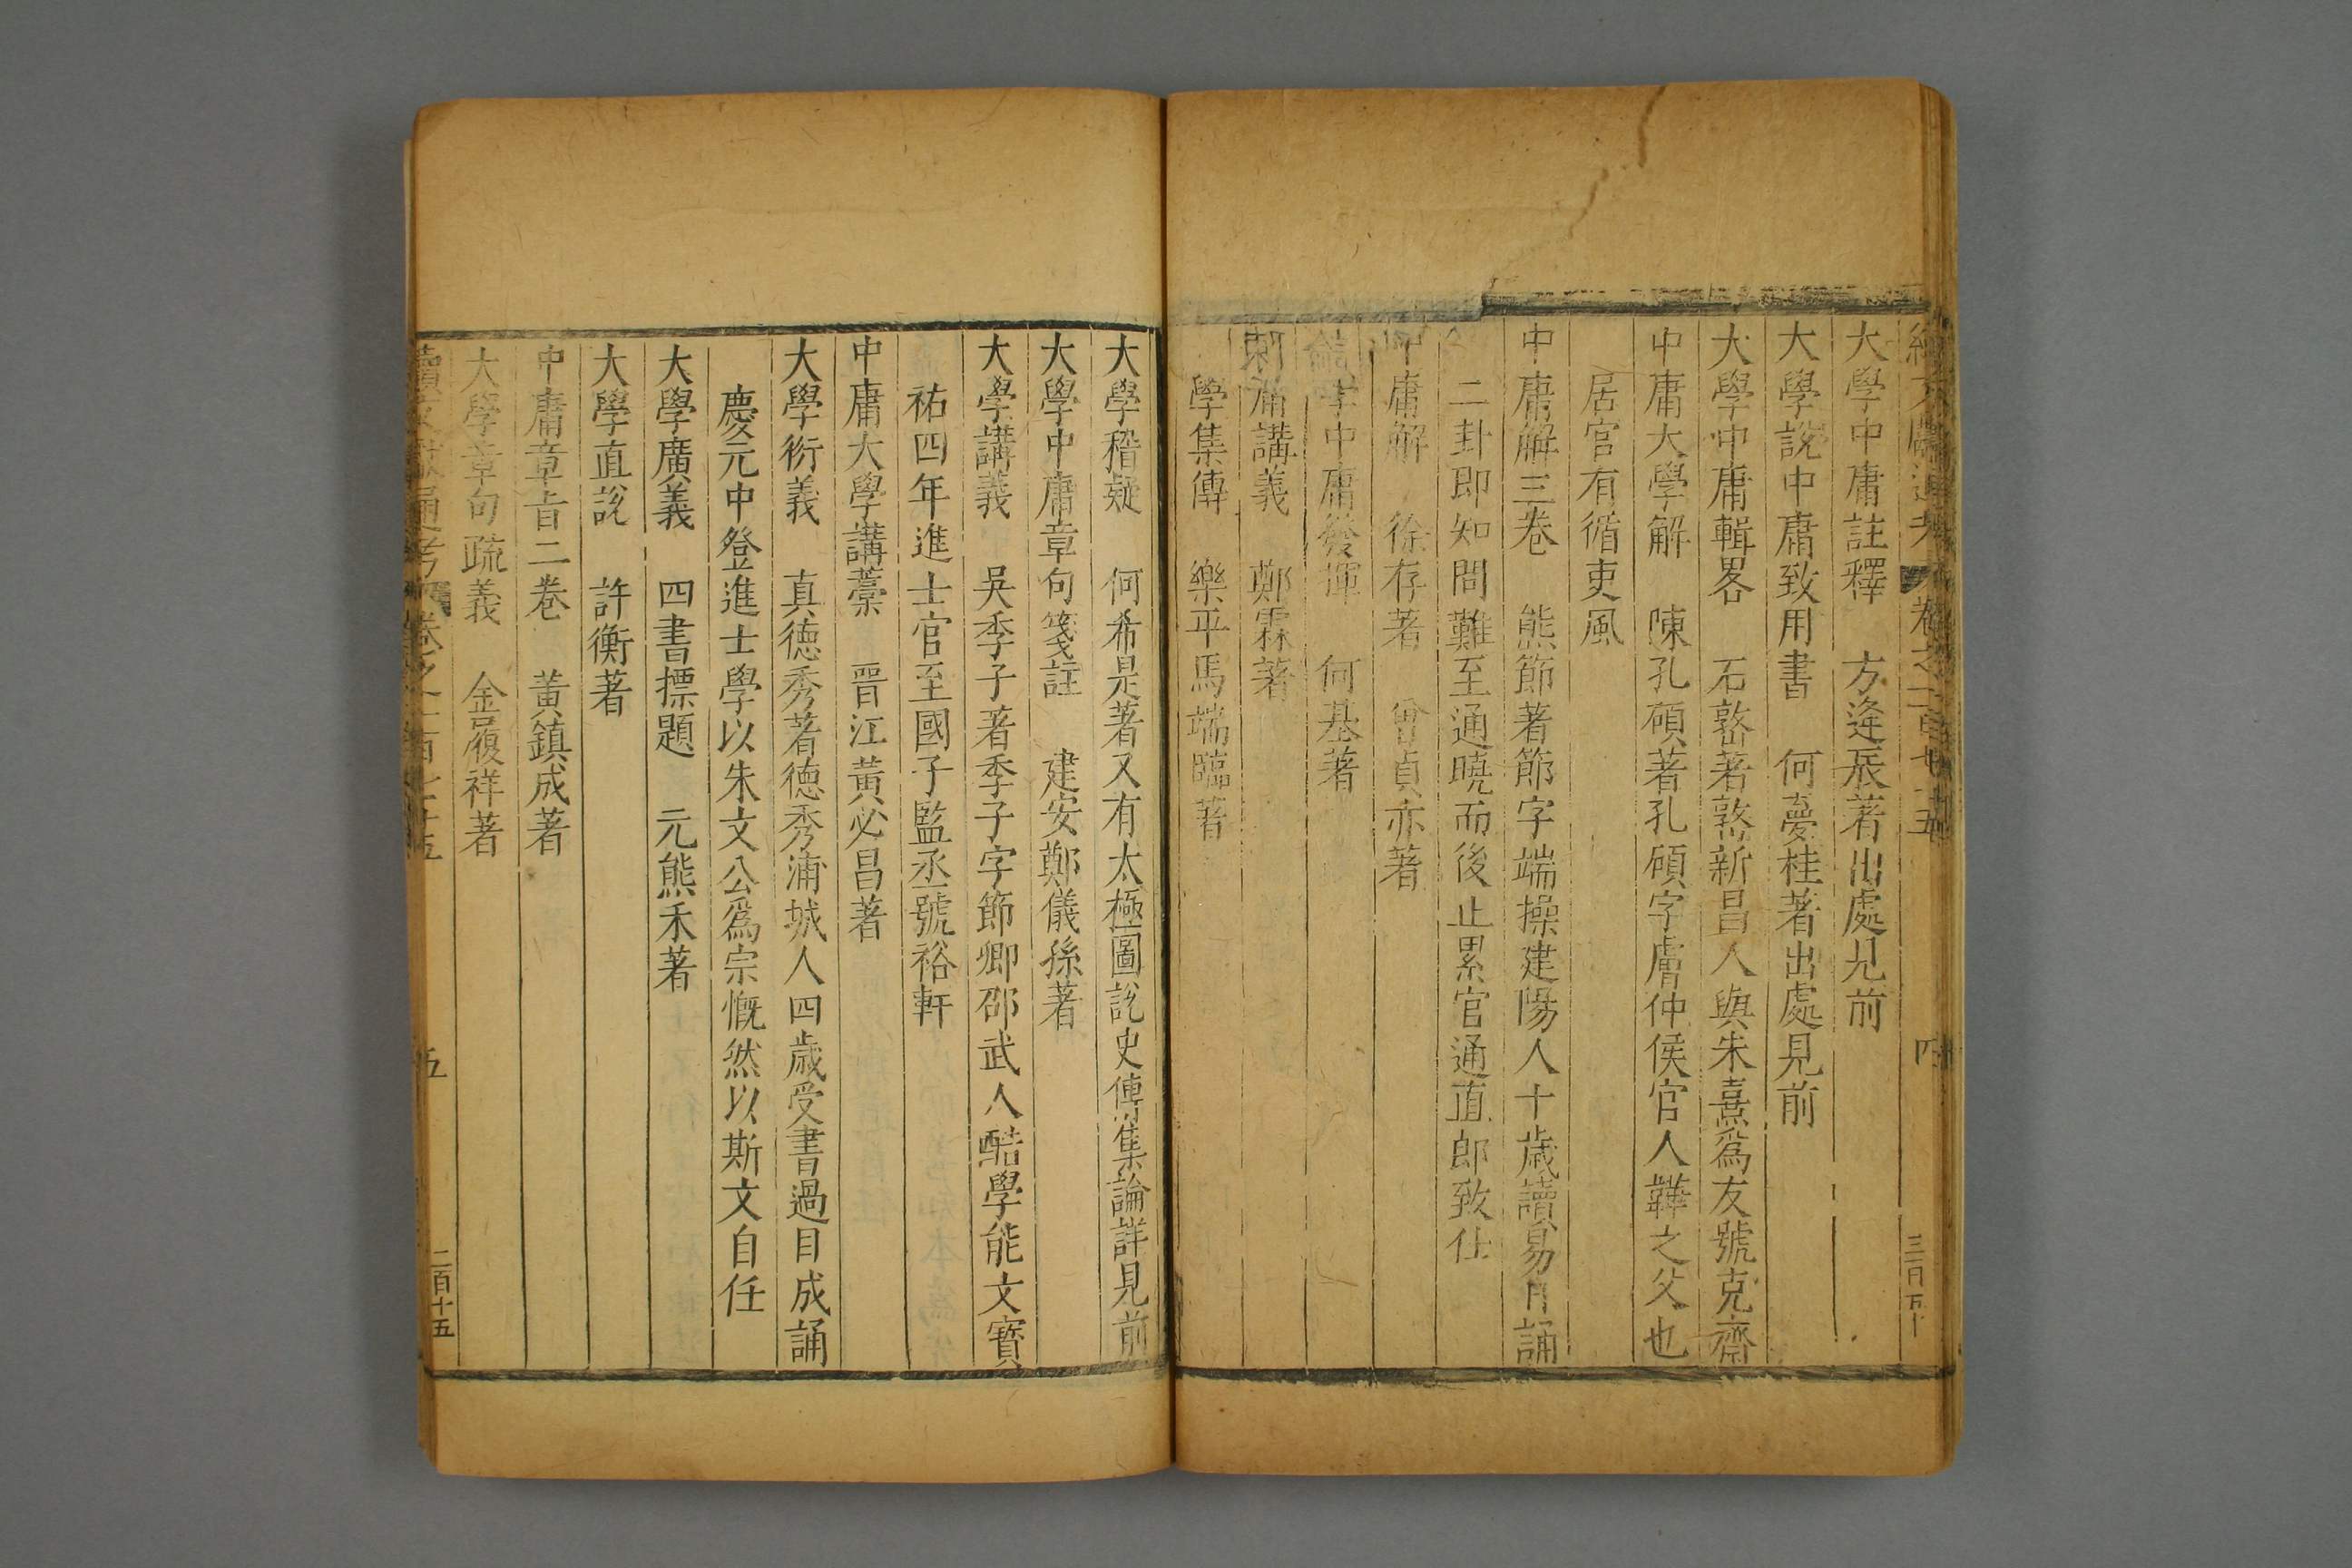 大學中庸註釋 方逢辰著出處見前
大學說中庸致用書 何夢桂著出處見前
大學中庸輯畧 石𡼖著𡼖新昌人與朱熹爲友號克齋
中庸大學解 陳孔碩著孔碩字膚仲侯官人韡之父也
居官有循吏風
中庸解三卷 熊節著節字端操建陽人十歲讀易日誦
二卦即知問難至通曉而後止累官通直郎致仕
中庸解 徐存著 曾貞亦著
學中庸發揮 何基著
庸講義 鄭霖著
學集傳 樂平馬端臨著
大學稽疑 何希是著又有太極圖說史傳集論詳見前
大學中庸章句箋註 建安鄭儀孫著
大學講義 吳季子著季子字節卿邵武人酷學能文寶
祐四年進士官至國子監丞號裕軒
中庸大學講藁 晋江黃必昌著
大學衍義 真德秀著德秀浦城人四歲受書過目成誦
慶元中登進士學以朱文公爲宗慨然以斯文自任
大學廣義 四書摽題 元熊禾著
大學直說 許衡著
中庸章旨二卷 黃鎮成著
大學章句疏義 金履祥著
續文獻通考 卷之一百七十五 五 二百十五